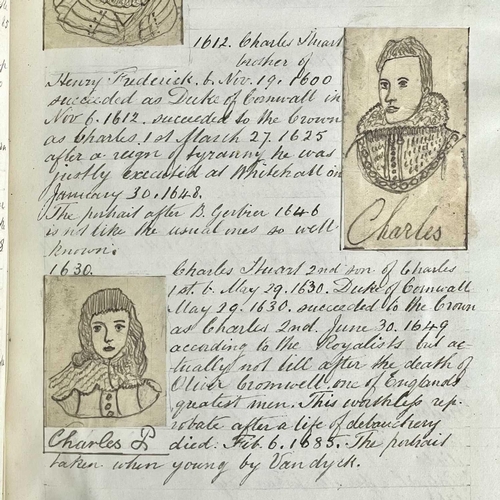 1612. Charles Stuart
brother of
Henry Frederick. b. Nov. 19. 1600
succeeded as Duke of Cornwall in
Nov 6. 1612. succeeded to the Crown
as Charles. 1st March 27. 1625
after a reign of tyranny he was
justly executed at Whitehall on
January 30. 1648.
The portrait after B. Gerbier 1646
is not like the usual ones so well
known.
Charles
1630.
Charles Stuart 2nd son of Charles
1st. b. May 29. 1630. Duke of Cornwall
May 29. 1630. succeeded to the Crown
as Charles 2nd. June 30. 1649
according to the Royalists but ac-
tually not till after the death of
Oliver Cromwell, one of Englands
greatest men. This worthless rep-
robate after a life of debauchery
died. Feb. 6. 1685. The portrait
taken when young by Vandyck.
Charles P